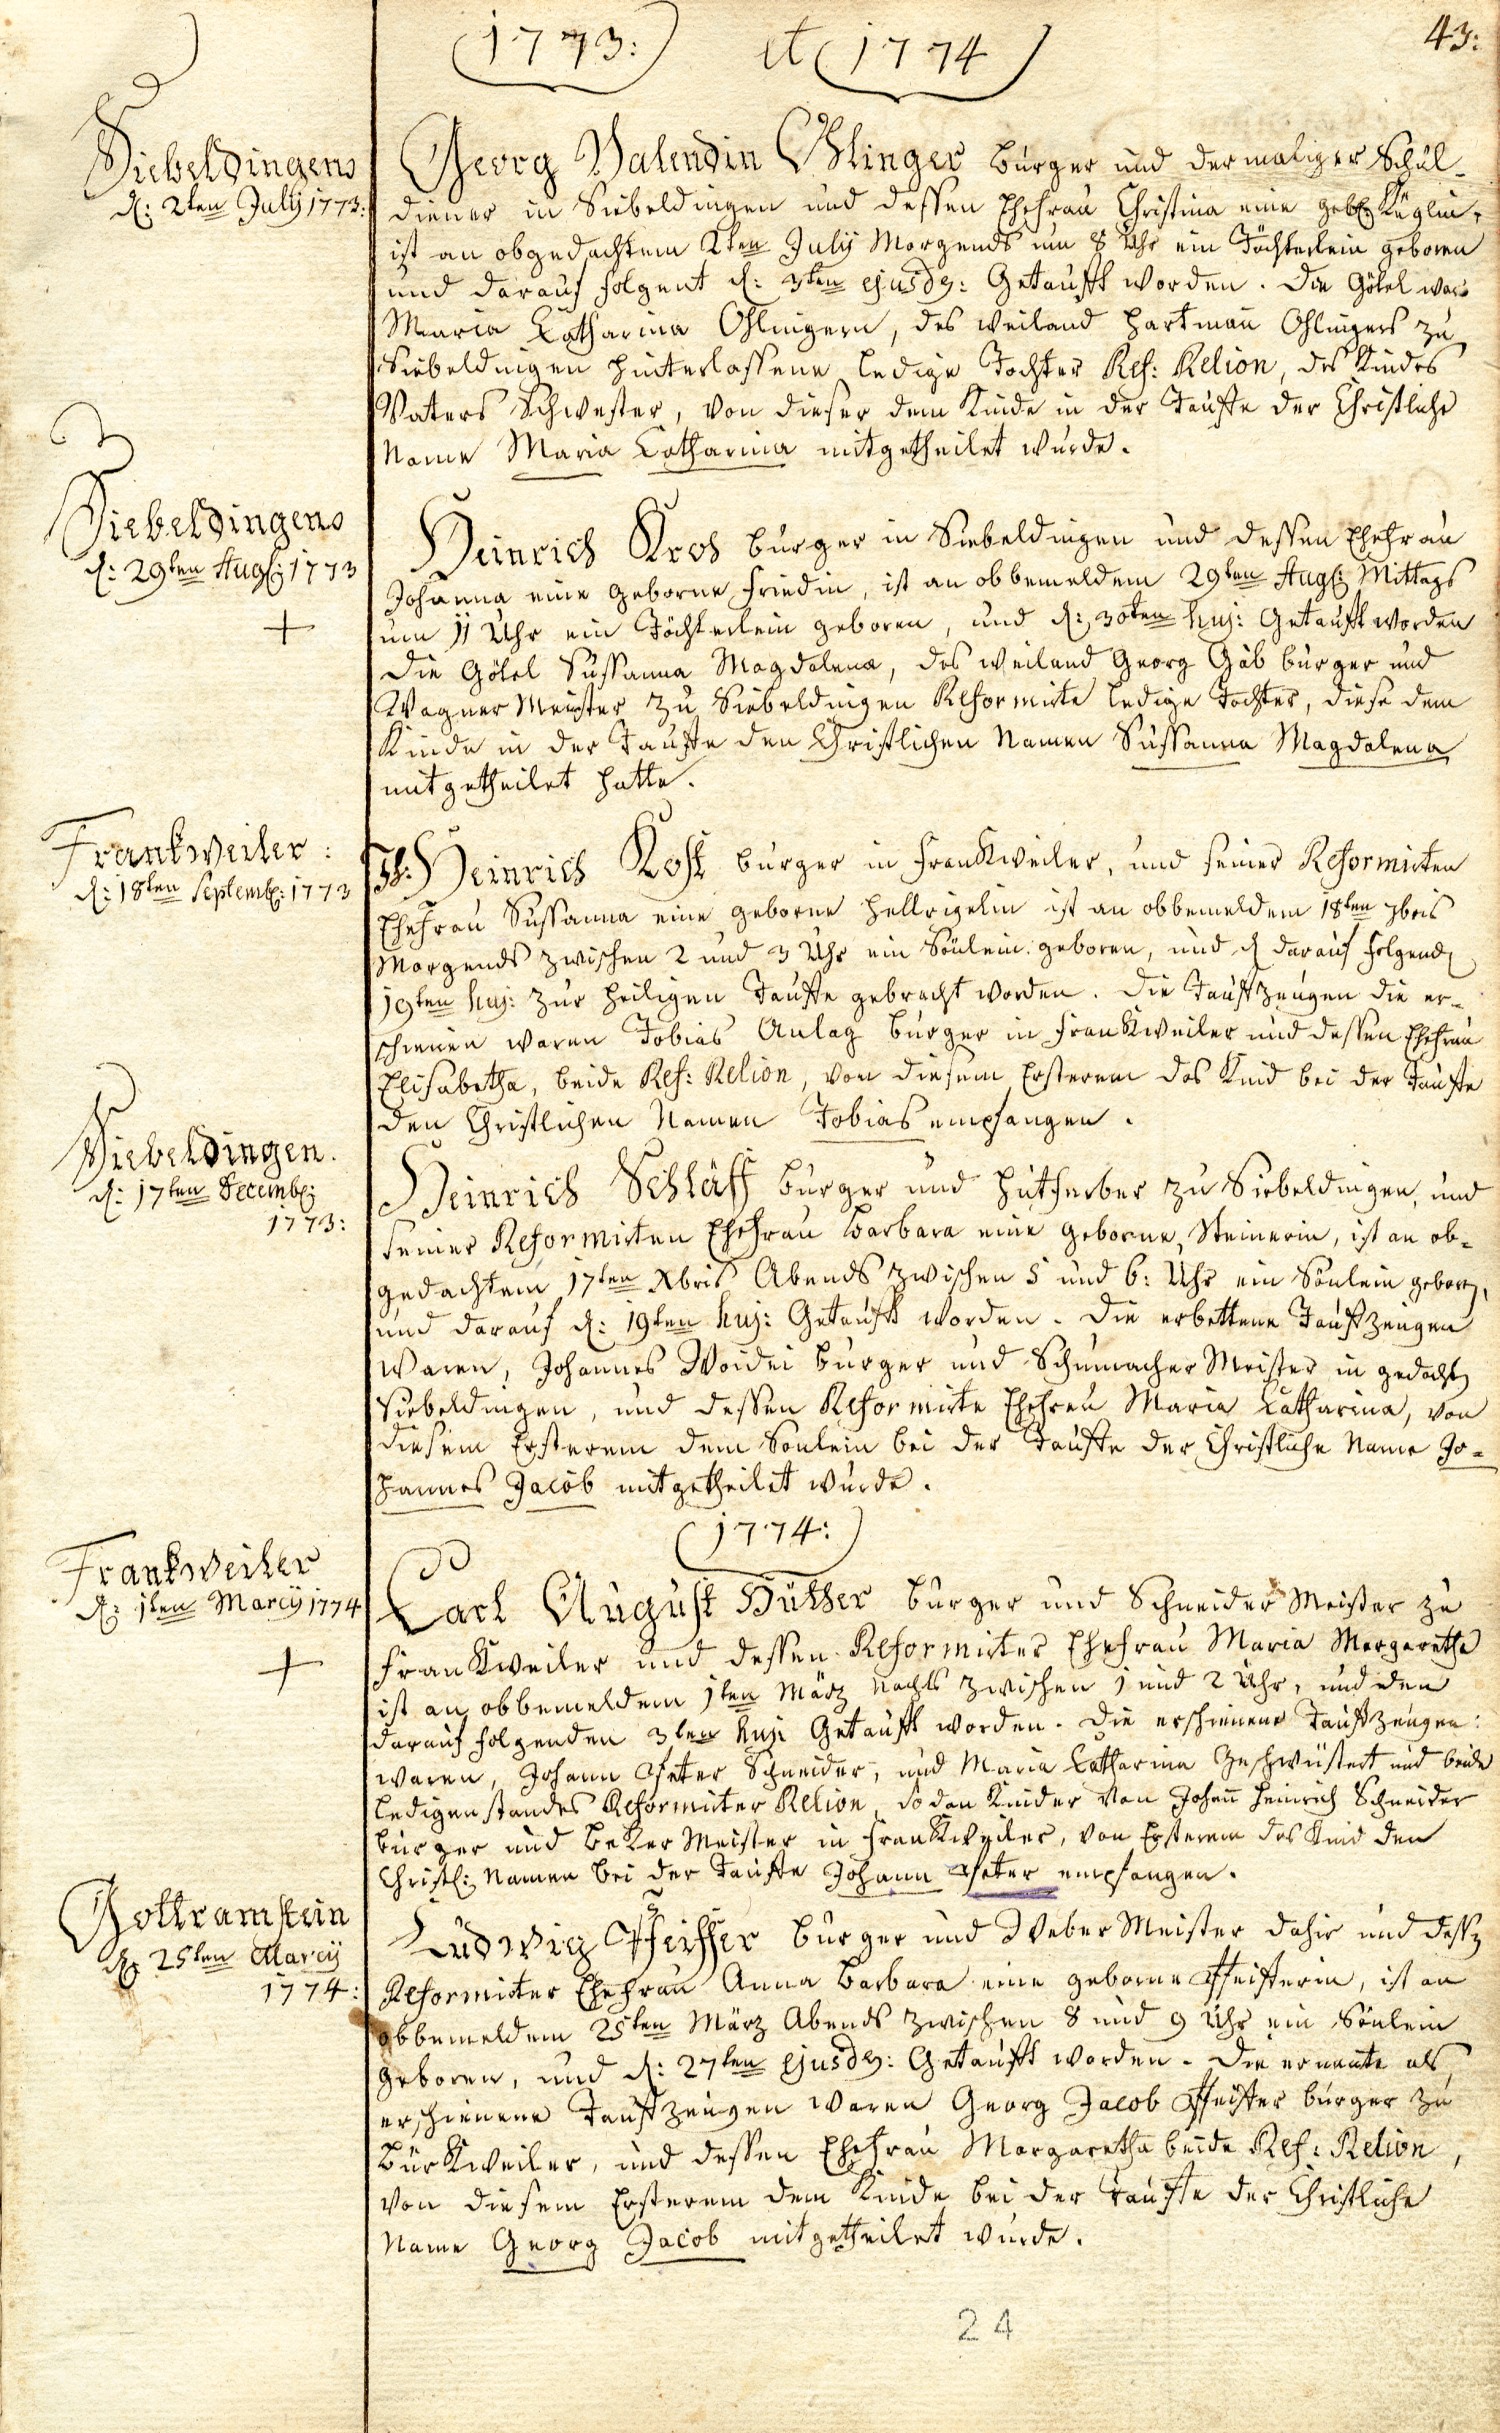 1773: et 1774
43:
Siebeldingens
d: 2ten July 1773:
Georg Valendin Ohlinger burger und dermaliger Schul-
diener in Siebeldingen und dessen Ehefrau Christina eine geb.
ist an obgedachtem 2ten July Morgends um 8 Uhr ein Töchterlein geboren
und darauf folgent d: 3ten ejusdg: Getaufft worden. Die Götel war
Maria Catharina Ohlingern, des weiland Hartman Ohlingers zu
Siebeldingen hinterlassene ledige Tochter Ref: Relion, des Kindes
Vaters Schwester, von dieser dem Kinde in der Tauffe der Christliche
Name Maria Catharina mitgetheilet wurde.
Siebeldingens
d: 29ten Aug: 1773
+
Heinrich Kroh burger in Siebeldingen und dessen Ehefrau
Johanna eine geborne Friedin, ist an obbemeldem 29ten Aug: Mittags
um 11 Uhr ein Töchterlein geboren, und d: 30ten huj: Getauft worden
Die Götel Sussanna Magdalena, des weiland Georg Gäb burger und
Wagner Meister zu Siebeldingen Reformirte ledige Tochter, diese dem
Kinde in der Tauffe den Christlichen Namen Sussanna Magdalena
mitgetheilet hatte.
Frankweiler:
d: 18ten Septemb: 1773
Heinrich Kost burger in Frankweiler, und seiner Reformirten
Ehefrau Sussanna eine geborne Hellrigelin ist an obbemeldem 18ten 7bris
Morgends zwischen 2 und 3 Uhr ein Sönlein geboren, und d darauf folgend
19ten huj: zur heiligen Tauffe gebracht worden. Die Taufzeugen die er-
schienen waren Tobias Aulag burger in Frankweiler und dessen Ehefrau
Elisabetha, beide Ref: Relion, von diesem Ersterem das Kind bei der Tauffe
den Christlichen Namen Tobias empfangen.
Siebeldingen.
d: 17ten Decemb:
1773:
Heinrich Schläff burger und Hutferber zu Siebeldingen, und
seiner Reformirten Ehefrau Barbara eine geborne Steinerin, ist an ob-
gedachtem 17ten Xbris Abends zwischen 5 und 6: Uhr ein Sönlein gebor,
und darauf d: 19ten huj: Getaufft worden. Die erbettene Taufzeugen
waren, Johannes Woidei burger und Schumacher Meister in gedacht
Siebeldingen, und dessen Reformirte Ehefrau Maria Catharina, von
diesem Ersterem dem Sönlein bei der Tauffe der Christliche Name Jo-
hannes Jacob mitgetheilet wurde.
1774:
Frankweiler
d: 1ten Marcij 1774
+
Carl August Hütter burger und Schneider Meister zu
Frankweiler und dessen Reformirter Ehefrau Maria Margaretha
ist an obbemeldem 1ten März Nachts zwischen 1 und 2 Uhr, und den
darauf folgenden 3ten huj: Getaufft worden. Die erschienene Taufzeugen:
waren, Johann Peter Schneider, und Maria Catharina Geschwüstert und beide
ledigen standes Reformirter Relion, so dan Kinder von Johann Heinrich Schneider
burger und Beker Meister in Frankweiler, von Ersterem das Kind den
Christl: Namen bei der Tauffe Johann Peter empfangen.
Gottramstein
d: 25ten Marcij
1774:
Ludwig Pfeiffer burger und Weber Meister dahir und dess
Reformirter Ehefrau Anna Barbara eine geborne Pfeisterin, ist an
obbemeldem 25ten März Abends zwischen 8 und 9 Uhr ein Sönlein
geboren, und d: 27ten ejusdg: Getaufft worden. Die ernante als
erschienene Taufzeugen waren Georg Jacob Pfeister burger zu
Bürkweiler, und dessen Ehefrau Margaretha beide Ref: Relion,
von diesem Ersterem dem Kinde bei der Tauffe der Christliche
Name Georg Jacob mitgetheilet wurde.
24